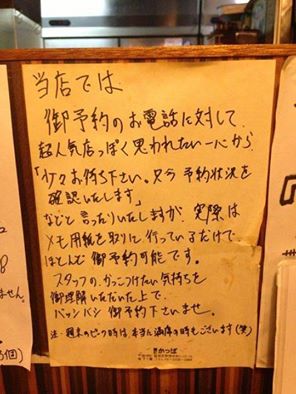 当店では
御予約のお電話に対して、
超人気店っぽく思われたい一心から
「少々お待ち下さい。只今 予約状況を
確認いたします」
などと言ったりいたしますが、実際は
メモ用紙を取りに行っているだけで
ほとんど 御予約可能です。
スタッフの、かっこつけたい気持ちを
御理解いただいた上で、
バッシバシ御予約下さいませ。
注・週末のピーク時は本当に満席の時もございます(笑)
かっぱ
ません。